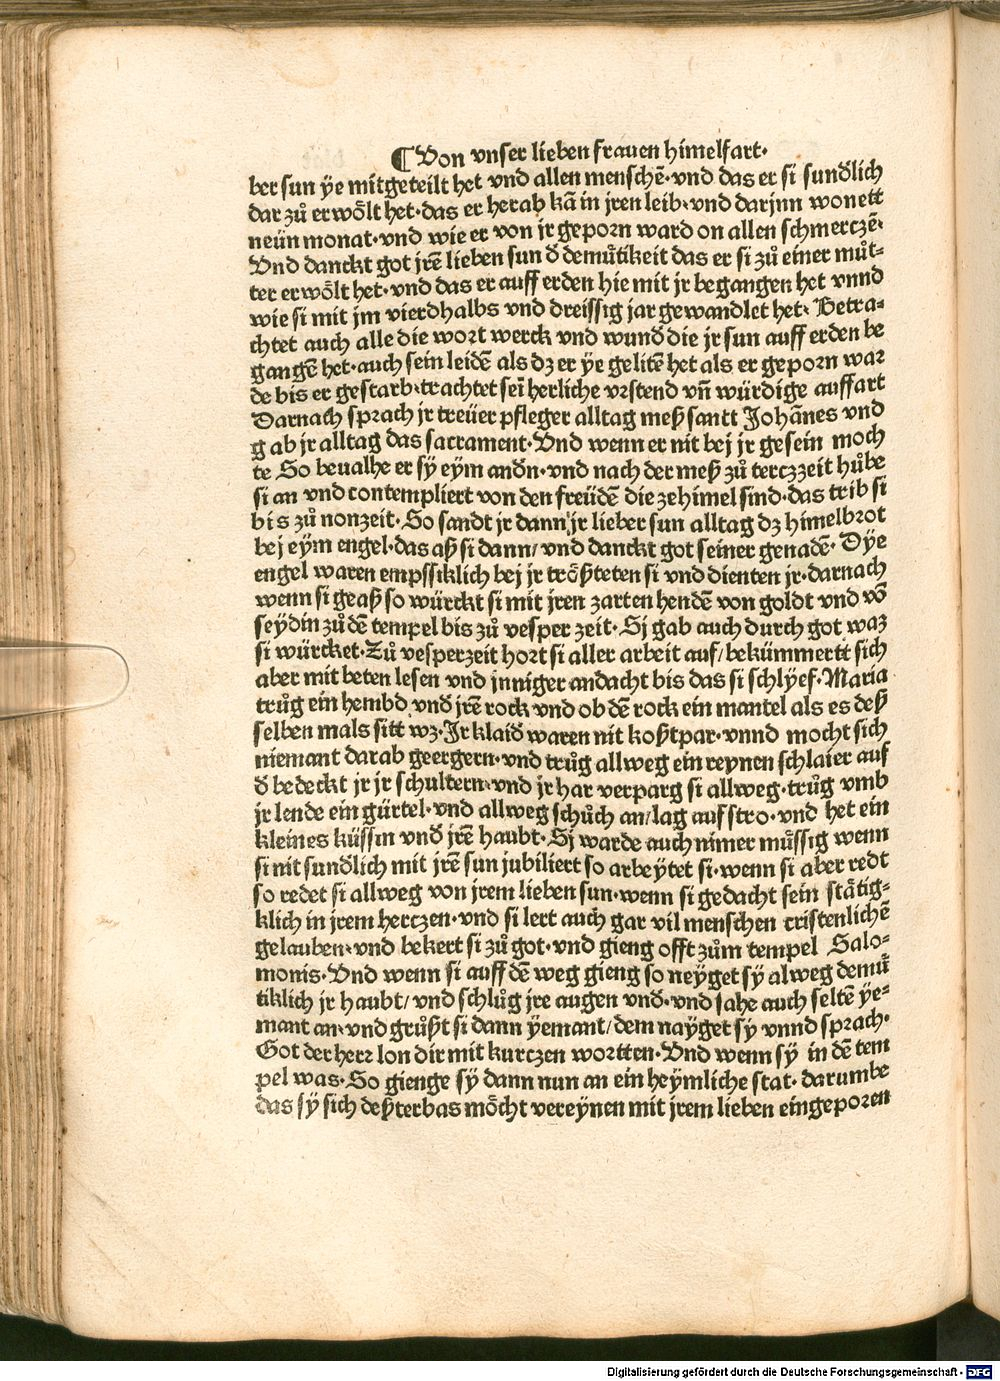 ¶ Von vnser lieben frauen himelfart.
ber sun ÿe mitgeteilt het vnd allen menschē· vnd das er si sundlich
dar zů erwõlt het· das er herab kā in jren leib· vnd darjnn wonett
neün monat· vnd wie er von jr geporn ward on allen schmerczē·
Vnd danckt got jrē lieben sun đ demůtikeit das er si zů einer můt-
ter erwõlt het· vnd das er auff erden hie mit jr begangen het vnnd
wie si mit jm vierdhalbs vnd dreissig jar gewandlet het· Betra-
chtet auch alle die wort werck vnd wunđ die jr sun auff erden be
gangē het· auch sein leidē als dz er ÿe gelitē het als er geporn war
de bis er gestarb· trachtet sei͞ herliche vrstend vn̄ würdige auffart
Darnach sprach jr treüer pfleger alltag meß sanct Johānes vnd
gab jr alltag das sacrament· Vnd wenn er nit bej jr gesein moch
te So beualhe er sÿ eÿm andn̄· vnd nach der meß zů terczzeit hůbe
si an vnd contempliert von den freüdē die ze himel sind· das trib si
bis zů nonzeit· So sandt jr dann jr lieber sun alltag dz himelbrot
bej eÿm engel· das aß si dann/ vnd danckt got seiner genadē· Dÿe
engel waren empssiklich bej jr trõßteten si vnd dienten jr· darnach
wenn si geaß so würckt si mit jren zarten hendē von goldt vnd võ
seÿdin zů dē tempel bis zů vesper zeit· Sj gab auch durch got waz
si würcket· Zů vesperzeit hort si aller arbeit auf/ bekümmertt sich
aber mit beten lesen vnd jnniger andacht bis das si schlÿef· Maria
trůg ein hembd vnđ jrē rock vnd ob dē rock ein mantel als es deß
selben mals sitt wz· Jr klaiđ waren nit koßtpar· vnnd mocht sich
niemant darab geergern· vnd trůg allweg ein reynen schlaier auf
đ bedeckt jr jr schultern· vnd jr har verparg si allweg· trůg vmb
jr lende ein gürtel· vnd allweg schůch an/ lag auf stro· vnd het ein
kleines küssin vnđ jrē haubt· Sj warde auch nimer můssig wenn
si nit sunđlich mit jrē sun jubiliert so arbeÿtet si· wenn si aber redt
so redet si allweg von jrem lieben sun· wenn si gedacht sein stätig-
klich in jrem herczen· vnd si lert auch gar vil menschen cristenlichē
gelauben· vnd bekert si zů got· vnd gieng offt zům tempel Salo-
monis· Vnd wenn si auff dē weg gieng so neÿget sÿ alweg demů
tiklich jr haubt/ vnd schlůg jre augen vnđ· vnd sahe auch seltē ÿe-
mant an· vnd grůßt si dann ÿemant/ dem naÿget sÿ vnnd sprach·
Got der herr lon dir mit kurczen wortten· Vnd wenn sÿ in dē tem
pel was· So gienge sÿ dann nun an ein heÿmliche stat· darumbe
das sÿ sich deßterbas mõcht vereÿnen mit jrem lieben eingeporen
Digitalisierung gefördert durch die Deutsche Forschungsgemeinschaft - DFG